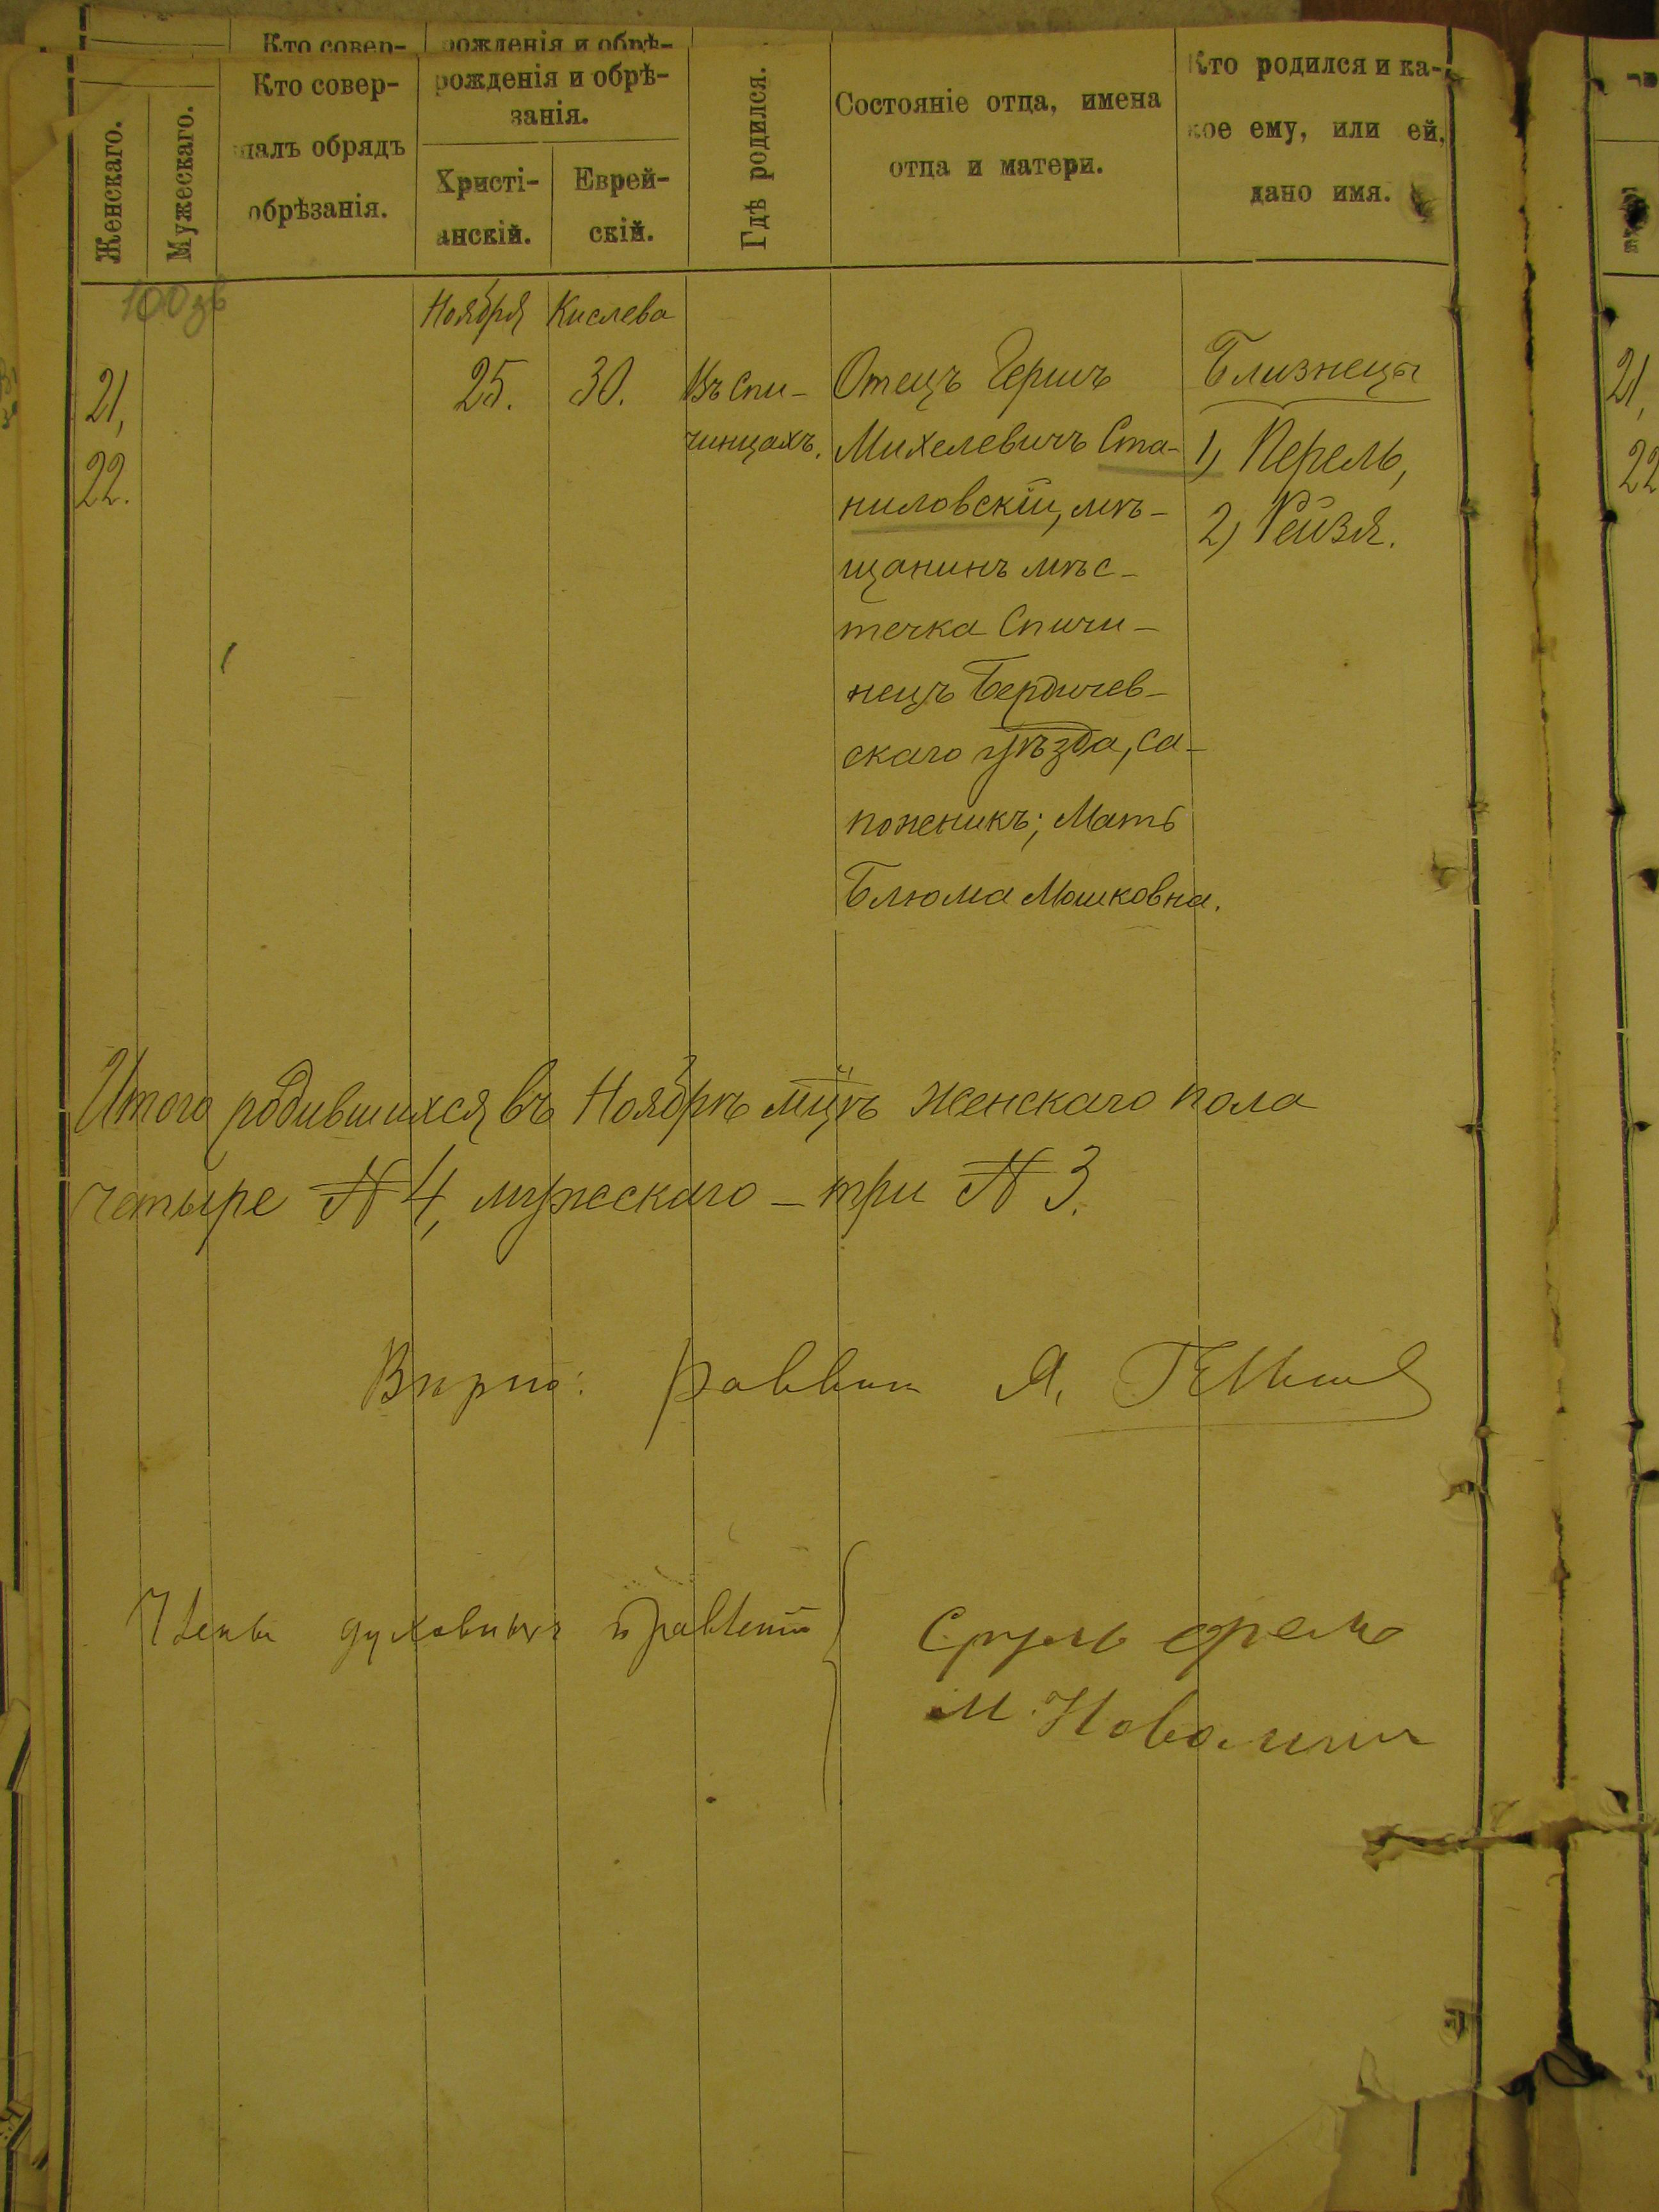 Кто совер-
рожденія и обрѣ-
Женскаго.
Мужескаго.
Кто совер-
шалъ обрядъ
обрѣзанія.
рожденія и обрѣ-
занія.
Христі-
анскій.
Еврей-
скій.
Гдѣ родился.
Состояніе отца, имена
отца и матери.
Кто родился и ка-
кое ему, или ей,
дано имя.
Ноября
Кислева
21,
22.
25.
30.
Въ Спи-
чинцахъ.
Отецъ Гершъ
Михелевичъ Ста-
ниловскій, мѣ-
щанинъ мѣс-
течка Спичи-
нецъ Бердичев-
скаго уѣзда, са-
пожникъ; Мать
Блюма Мошковна.
Близнецы
1) Перель,
2) Рейзя.
Итого родившихся въ Ноябрѣ мцѣ женскаго пола
четыре № 4, мужескаго – три № 3.
Вѣрно: раввин Я.
Члены духовныхъ правленій
Сруль
М.
21,
22